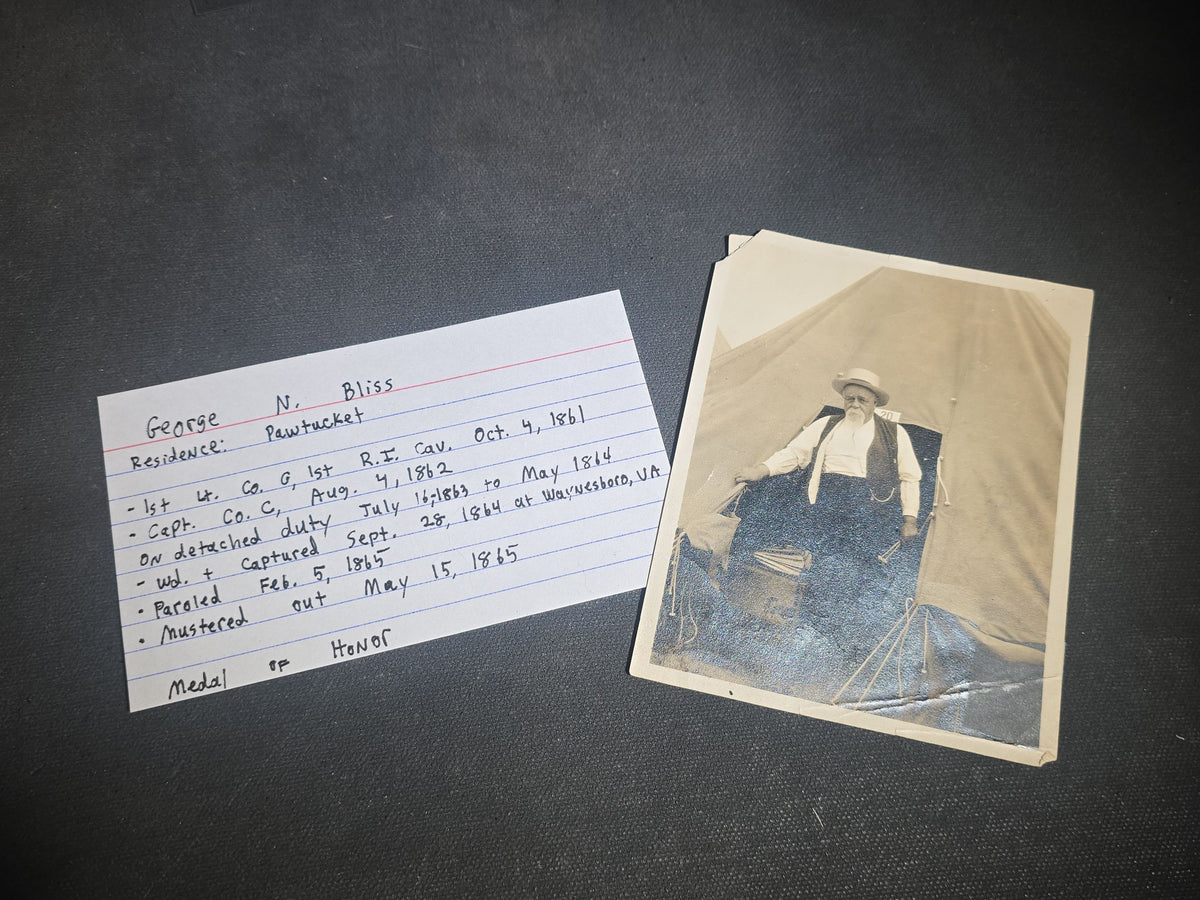 George N. Bliss
Residence: Pawtucket
- 1st Lt. Co. G, 1st R.I. Cav. Oct. 4, 1861
- Capt. Co. C, Aug. 4, 1862
ON detached duty July 16, 1863 to May 1864
- wd. + captured Sept. 28, 1864 at Waynesboro, VA
• Paroled Feb. 5, 1865
• Mustered out May 15, 1865
Medal OF HONOR
20